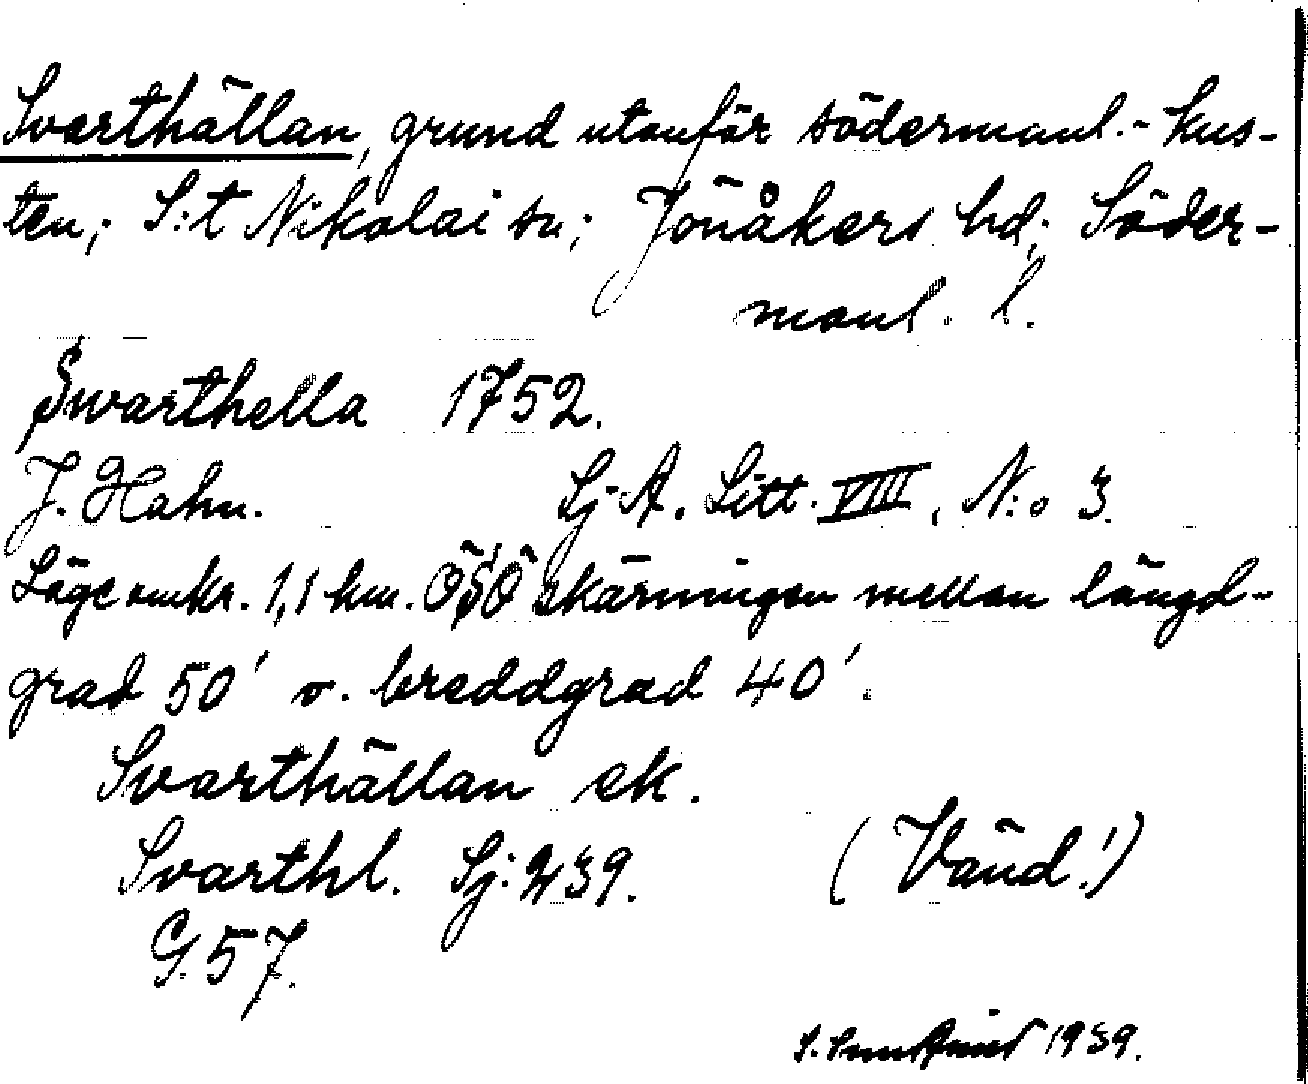 Svarthällan, grund utanför södermanl.-kus-
ten; S:t Nikolai sn; Jönåkers hd; Söder-
manl. l.
Swarthella 1752.
J. Hahn. Sj A. Litt. VIII, N:o 3.
Läge omkr. 1,1 km. ÖSÖ skärningen mellan längd-
grad 50' o. breddgrad 40'.
Svarthällan ek.
Svarthl. Sj: 239.
(Vänd!)
G. 57.
1939.